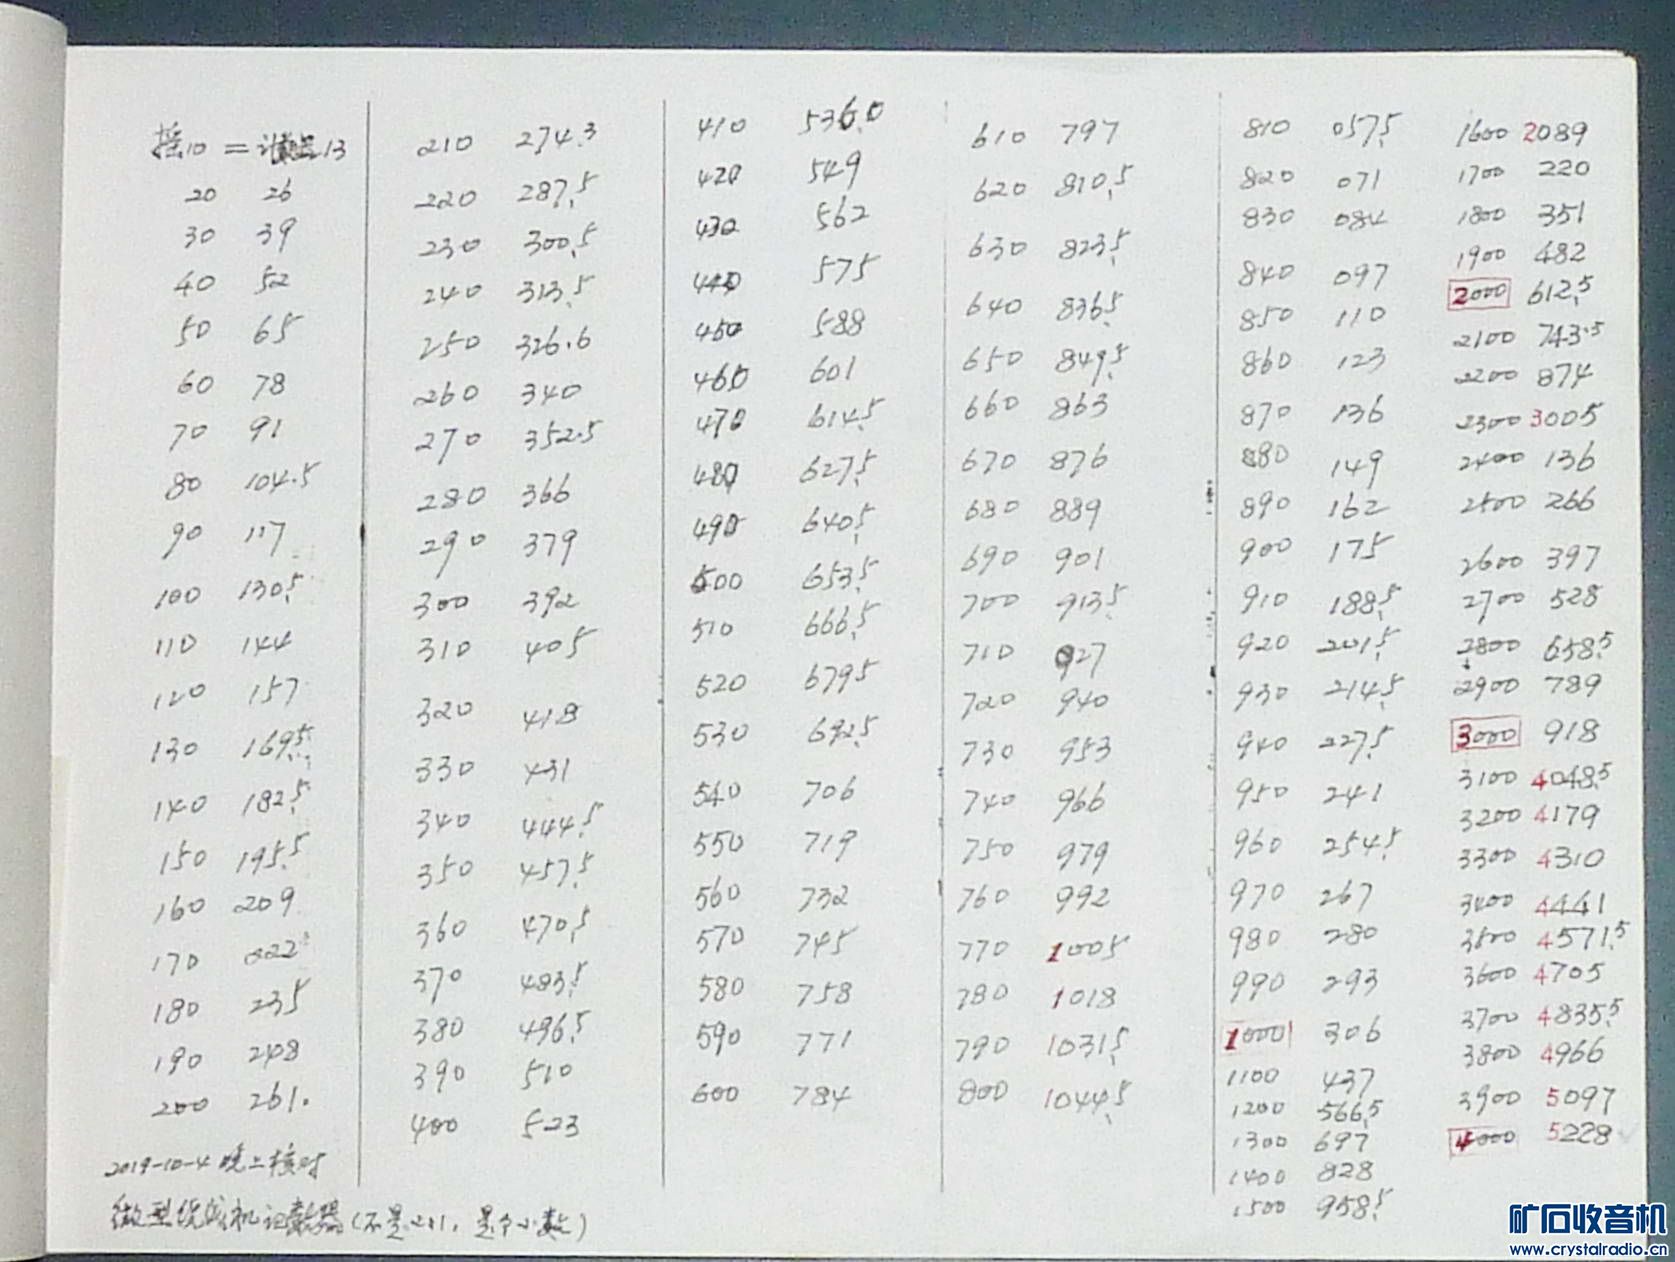 摇10 = 计数器13
20 26
30 39
40 52
50 65
60 78
70 91
80 104.5
90 117
100 130.5
110 144
120 157
130 169.5
140 182.5
150 195.5
160 209
170 222
180 235
190 248
200 261.
2019-10-4 晚上核对
微型绕线机记数器(不是1:1,是个小数)
210 274.3
220 287.5
230 300.5
240 313.5
250 326.6
260 340
270 352.5
280 366
290 379
300 392
310 405
320 418
330 431
340 444.5
350 457.5
360 470.5
370 483.5
380 496.5
390 510
400 523
410 536.0
420 549
430 562
440 575
450 588
460 601
470 614.5
480 627.5
490 640.5
500 653.5
510 666.5
520 679.5
530 692.5
540 706
550 719
560 732
570 745
580 758
590 771
600 784
610 797
620 810.5
630 823.5
640 836.5
650 849.5
660 863
670 876
680 889
690 901
700 913.5
710 927
720 940
730 953
740 966
750 979
760 992
770 1005
780 1018
790 1031.5
800 1044.5
810 057.5
820 071
830 084
840 097
850 110
860 123
870 136
880 149
890 162
900 175
910 188.5
920 201.5
930 214.5
940 227.5
950 241
960 254.5
970 267
980 280
990 293
1000 306
1100 437
1200 566.5
1300 697
1400 828
1500 958.5
1600 2089
1700 220
1800 351
1900 482
2000 612.5
2100 743.5
2200 874
2300 3005
2400 136
2500 266
2600 397
2700 528
2800 658.5
2900 789
3000 918
3100 4048.5
3200 4179
3300 4310
3400 4441
3500 4571.5
3600 4705
3700 4835.5
3800 4966
3900 5097
4000 5228
矿石收音机
www.crystalradio.cn